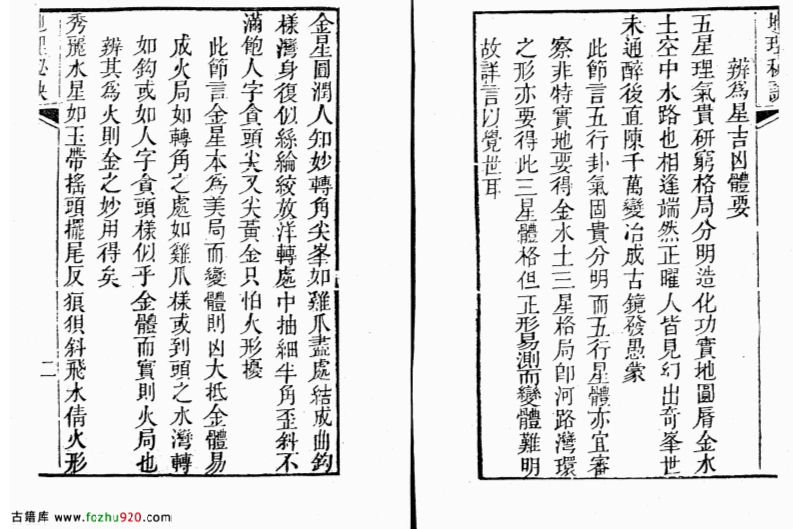 地理秘訣
辨為星吉凶體要
五星理氣貴研窮格局分明造化功實地圓唇金水
土空中水路也相逢端然正曜人皆見幻出奇峯世
未通醉後直陳千萬變冶成古鏡發愚蒙
此節言五行卦氣固貴分明而五行星體亦宜審
察非特實地要得金水土三星格局卽河路灣環
之形亦要得此三星體格但正形易測而變體難明
故詳言以覺世耳
金星圓潤人知妙轉角尖峯如雞爪盡處結成曲鉤
樣灣身復似絲綸絞放洋轉處中抽細半角歪斜不
滿飽人字貪頭尖又尖黃金只怕火形擾
此節言金星本為美局而變體則凶大抵金體易
成火局如轉角之處如雞爪樣或到頭之水灣轉
如鉤或如人字貪頭樣似乎金體而實則火局也
辨其為火則金之妙用得矣
秀麗水星如玉帶搖頭擺尾反痕狽斜飛水倩火形
地理秘訣
二
古籍库 www.fozhu920.com